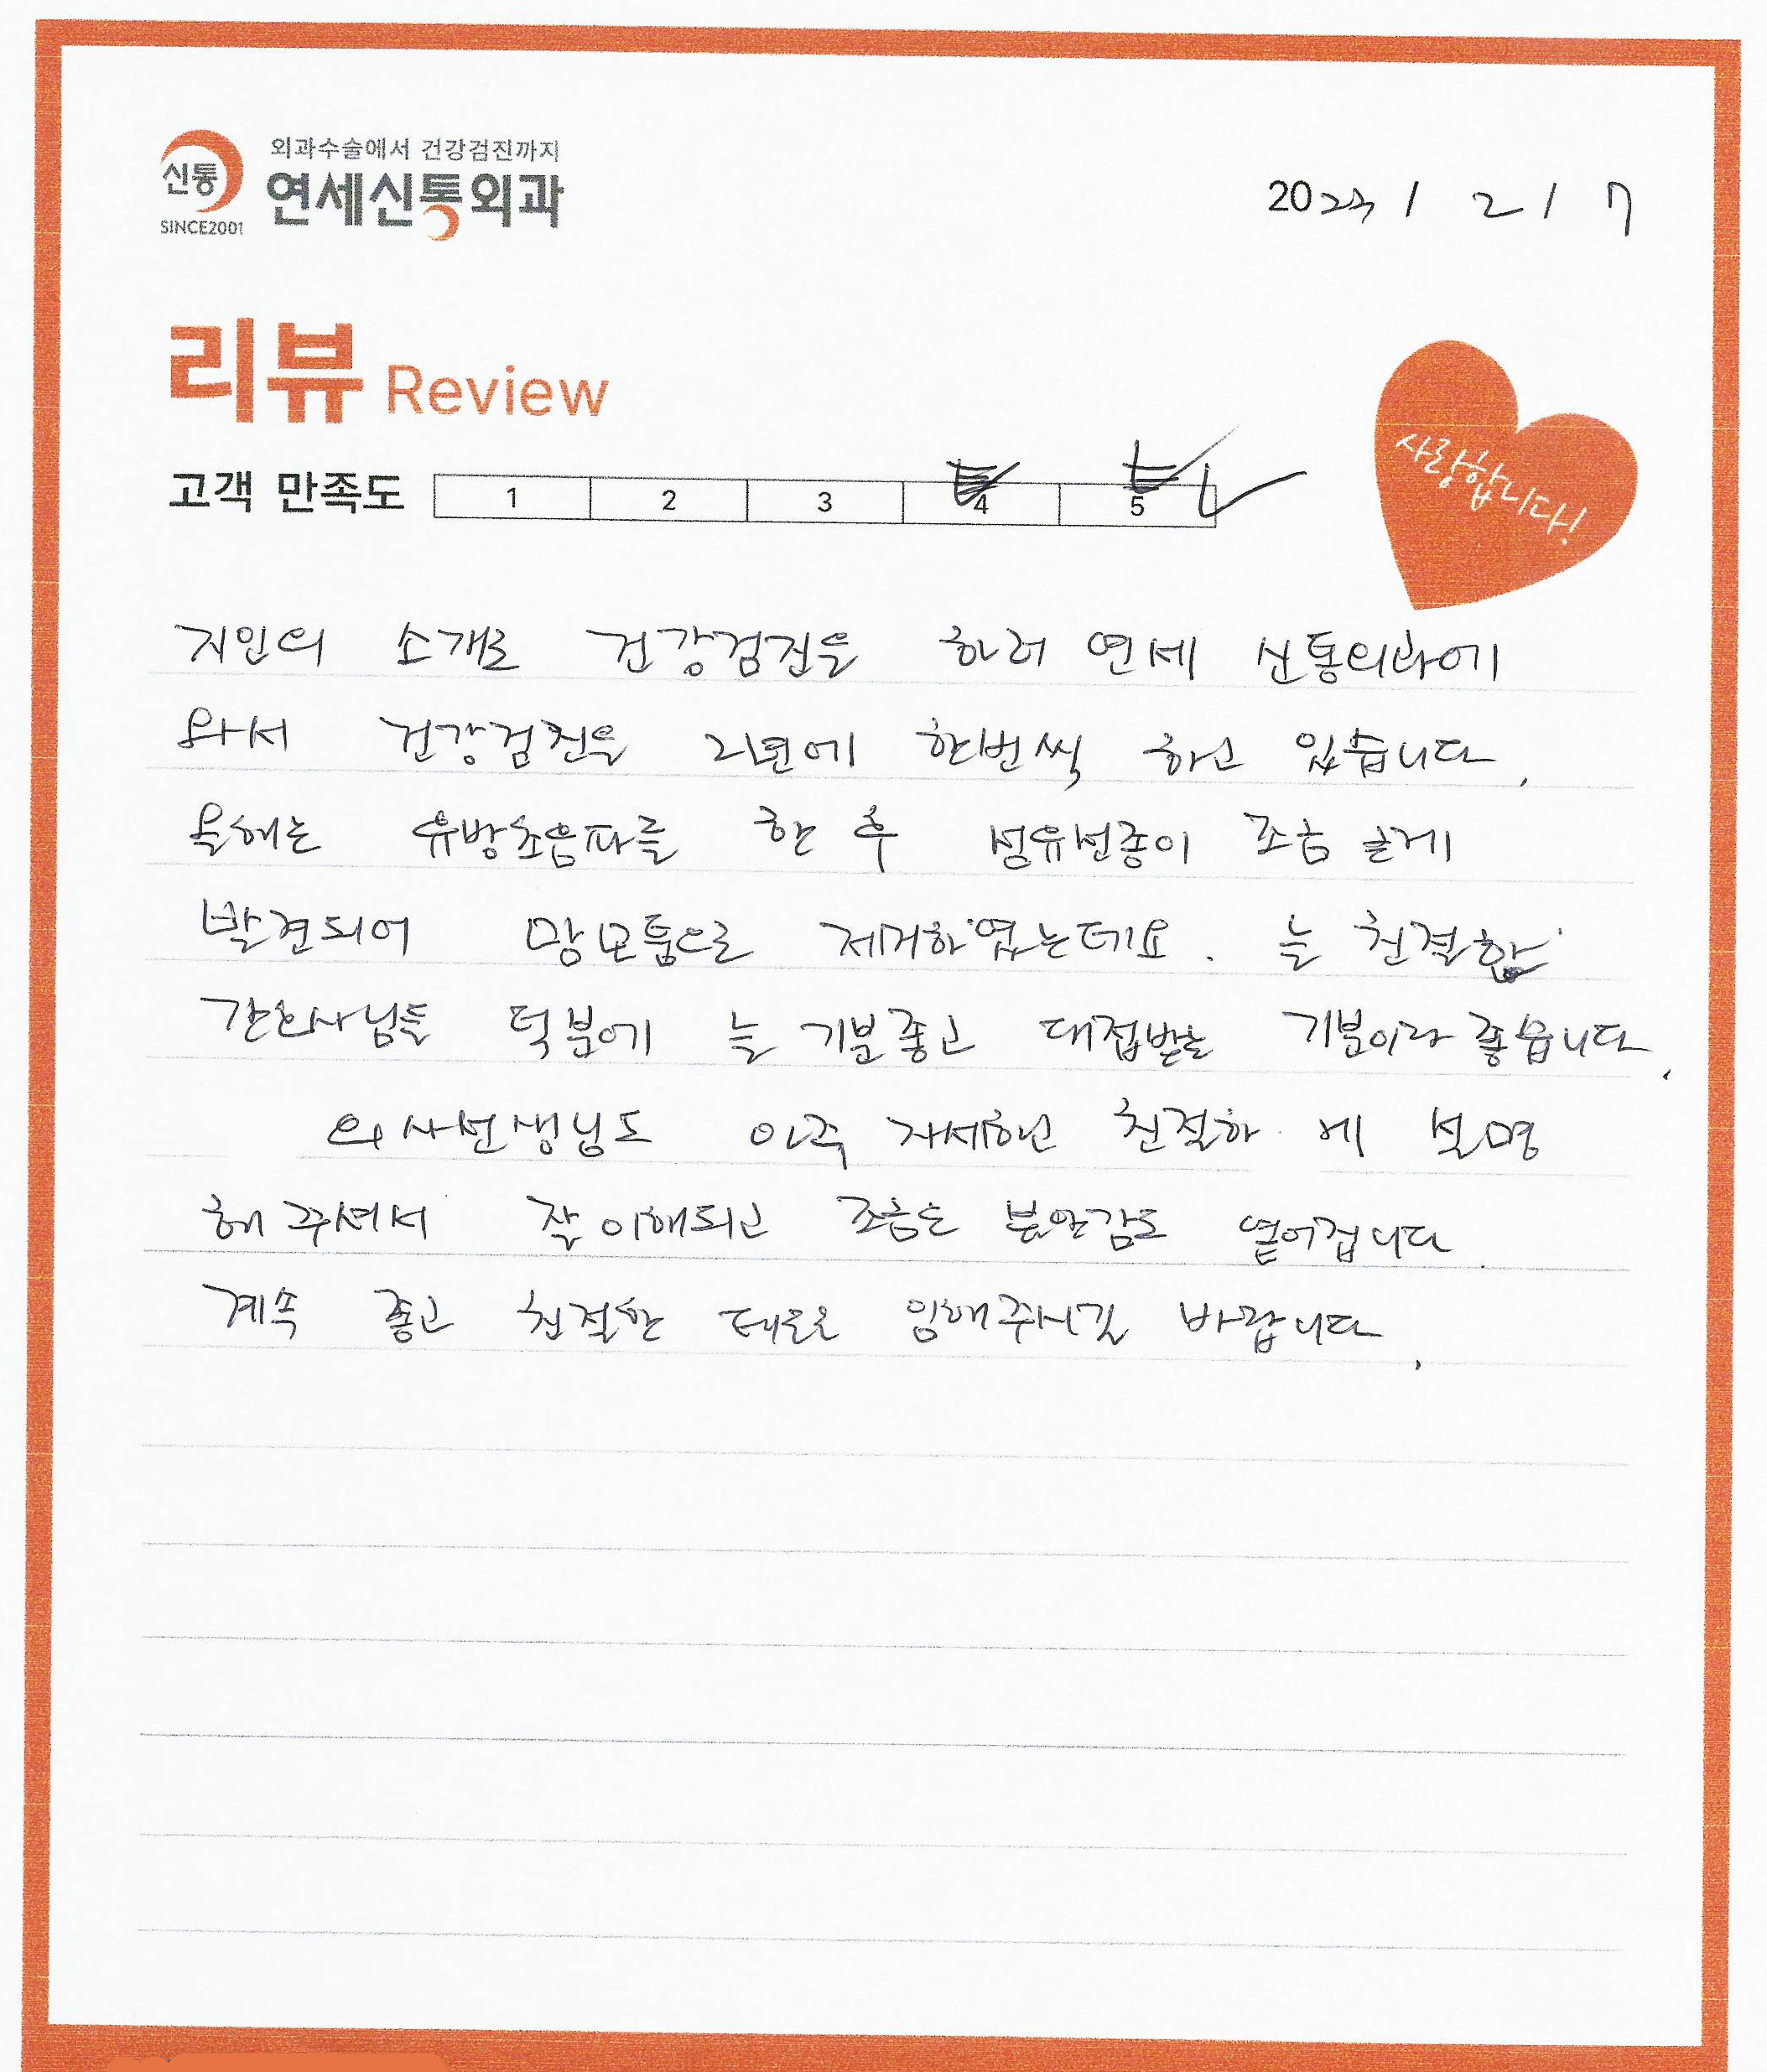 신통
SINCE2001
외과수술에서 건강검진까지
연세신통외과
2023 / 2 / 7
리뷰 Review
사랑합니다!
고객 만족도 1 2 3 4 5
지인의 소개로 건강검진을 하러 연세 신통외과에
와서 건강검진을 2년에 한번씩 하고 있습니다.
올해는 유방초음파를 한 후 섬유선종이 조금 크게
발견되어 맘모툼으로 제거하였는데요. 늘 친절한
간호사님들 덕분에 늘 기분좋고 대접받는 기분이라 좋습니다.
의사선생님도 아주 자세하고 친절하게 설명
해 주셔서 잘 이해되고 조금은 불안감도 옅어집니다.
계속 좋고 친절한 태도로 임해주시길 바랍니다.